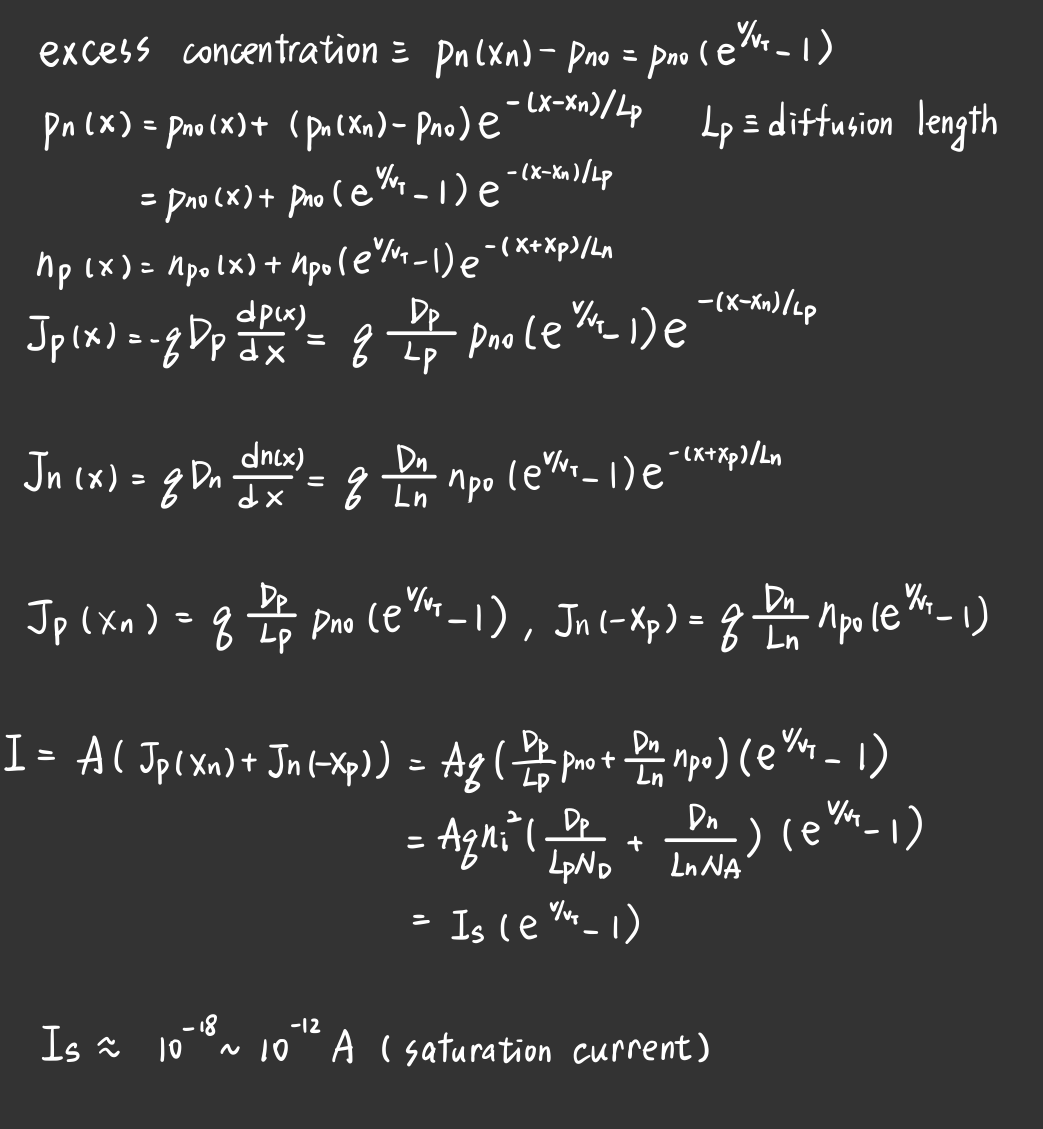 excess concentration ≡ pn(xn) - pno = pno(e^V/VT - 1)
pn(x) = pno(x) + (pn(xn) - pno)e^-(x-xn)/Lp Lp ≡ diffusion length
= pno(x) + pno(e^V/VT - 1)e^-(x-xn)/Lp
np(x) = npo(x) + npo(e^V/VT - 1)e^-(x+xp)/Ln
Jp(x) = -qDp dp(x)/dx = q Dp/Lp pno(e^V/VT - 1)e^-(x-xn)/Lp
Jn(x) = qDn dn(x)/dx = q Dn/Ln npo(e^V/VT - 1)e^-(x+xp)/Ln
Jp(xn) = q Dp/Lp pno(e^V/VT - 1), Jn(-xp) = q Dn/Ln npo(e^V/VT - 1)
I = A(Jp(xn) + Jn(-xp)) = Aq(Dp/Lp pno + Dn/Ln npo)(e^V/VT - 1)
= Aqni²(Dp/LpND + Dn/LnNA)(e^V/VT - 1)
= Is(e^V/VT - 1)
Is ≈ 10^-18 ~ 10^-12 A (saturation current)